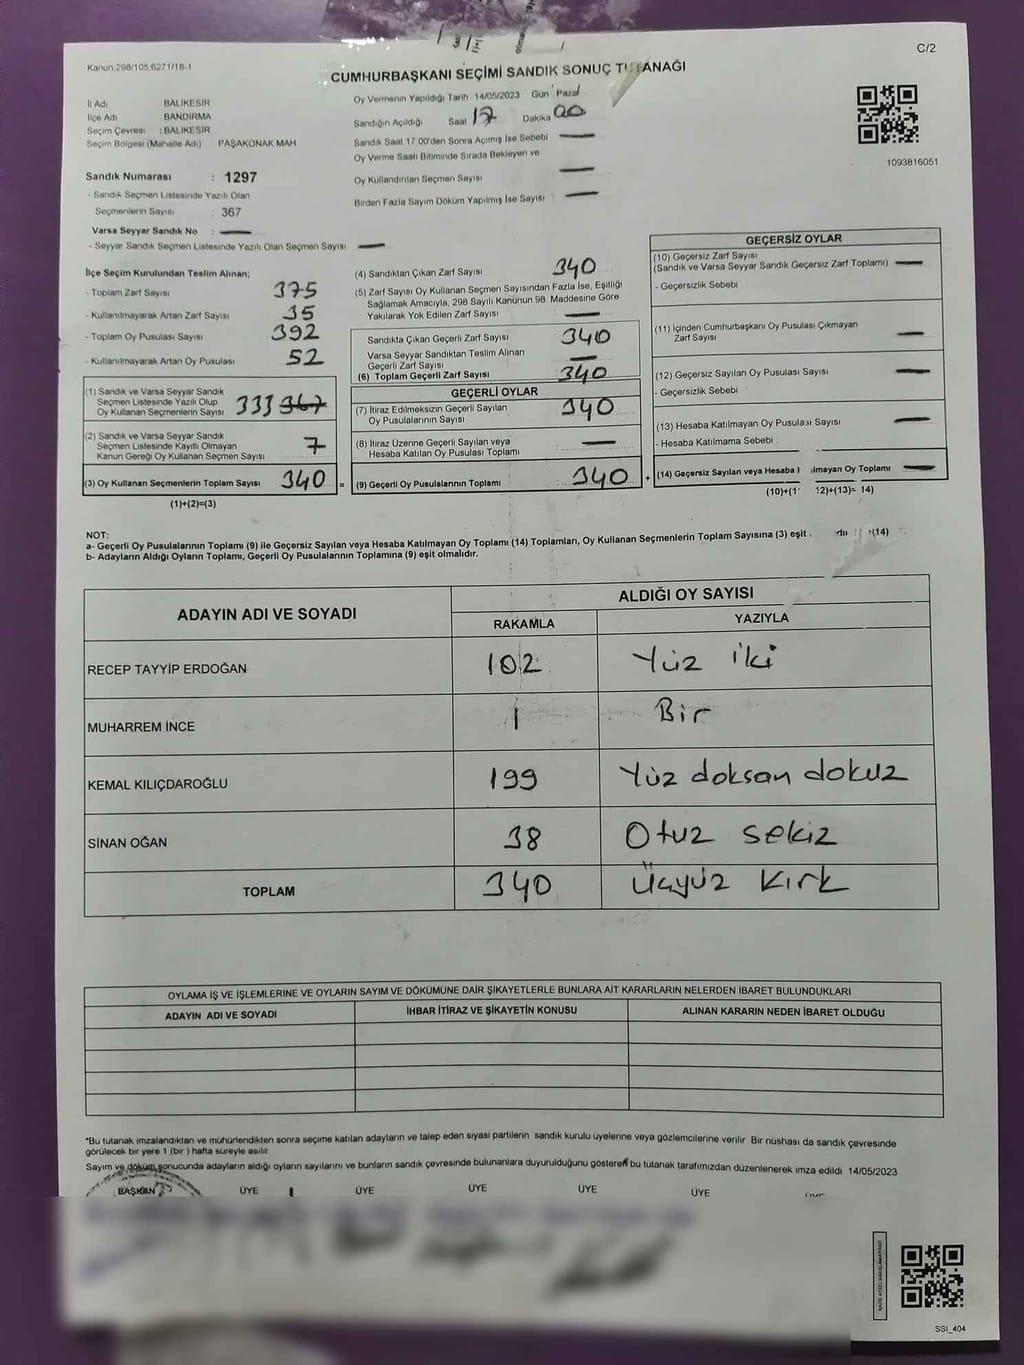 C/2
Kanun.298/105.6271/18-1
CUMHURBAŞKANI SEÇİMİ SANDIK SONUÇ TUTANAĞI
İl Adı BALIKESİR
İlçe Adı BANDIRMA
Seçim Çevresi :BALIKESİR
Seçim Bölgesi (Mahalle Adı) PAŞAKONAK MAH
Sandık Numarası : 1297
- Sandık Seçmen Listesinde Yazılı Olan
Seçmenlerin Sayısı : 367
Varsa Seyyar Sandık No :
- Seyyar Sandık Seçmen Listesinde Yazılı Olan Seçmen Sayısı
Oy Vermenin Yapıldığı Tarih 14/05/2023 Gün Pazar
Sandığın Açıldığı Saat 17 Dakika 00
Sandık Saat 17.00'den Sonra Açılmış İse Sebebi
Oy Verme Saati Bitiminde Sırada Bekleyen ve
Oy Kullandırılan Seçmen Sayısı
Birden Fazla Sayım Döküm Yapılmış İse Sayısı
1093816051
İlçe Seçim Kurulundan Teslim Alınan;
- Toplam Zarf Sayısı 375
- Kullanılmayarak Artan Zarf Sayısı 35
- Toplam Oy Pusulası Sayısı 392
- Kullanılmayarak Artan Oy Pusulası 52
(1) Sandık ve Varsa Seyyar Sandık
Seçmen Listesinde Yazılı Olup
Oy Kullanan Seçmenlerin Sayısı 333 367
(2) Sandık ve Varsa Seyyar Sandık
Seçmen Listesinde Kayıtlı Olmayan
Kanun Gereği Oy Kullanan Seçmen Sayısı 7
(3) Oy Kullanan Seçmenlerin Toplam Sayısı 340 =
(1)+(2)=(3)
(4) Sandıktan Çıkan Zarf Sayısı 340
(5) Zarf Sayısı Oy Kullanan Seçmen Sayısından Fazla İse, Eşitliği
Sağlamak Amacıyla, 298 Sayılı Kanunun 98. Maddesine Göre
Yakılarak Yok Edilen Zarf Sayısı
Sandıkta Çıkan Geçerli Zarf Sayısı 340
Varsa Seyyar Sandıktan Teslim Alınan
Geçerli Zarf Sayısı
(6) Toplam Geçerli Zarf Sayısı 340
GEÇERLİ OYLAR
(7) İtiraz Edilmeksizin Geçerli Sayılan
Oy Pusulalarının Sayısı 340
(8) İtiraz Üzerine Geçerli Sayılan veya
Hesaba Katılan Oy Pusulası Toplamı
(9) Geçerli Oy Pusulalarının Toplamı 340 +
GEÇERSİZ OYLAR
(10) Geçersiz Zarf Sayısı
(Sandık ve Varsa Seyyar Sandık Geçersiz Zarf Toplamı)
- Geçersizlik Sebebi
(11) İçinden Cumhurbaşkanı Oy Pusulası Çıkmayan
Zarf Sayısı
(12) Geçersiz Sayılan Oy Pusulası Sayısı
- Geçersizlik Sebebi
(13) Hesaba Katılmayan Oy Pusulası Sayısı
- Hesaba Katılmama Sebebi
(14) Geçersiz Sayılan veya Hesaba ılmayan Oy Toplamı
(10)+(1 12)+(13)= 14)
NOT:
a- Geçerli Oy Pusulalarının Toplamı (9) ile Geçersiz Sayılan veya Hesaba Katılmayan Oy Toplamı (14) Toplamları, Oy Kullanan Seçmenlerin Toplam Sayısına (3) eşit +(14)
b- Adayların Aldığı Oyların Toplamı, Geçerli Oy Pusulalarının Toplamına (9) eşit olmalıdır.
ADAYIN ADI VE SOYADI ALDIĞI OY SAYISI
RAKAMLA YAZIYLA
RECEP TAYYİP ERDOĞAN 102 Yüz iki
MUHARREM İNCE 1 Bir
KEMAL KILIÇDAROĞLU 199 Yüz doksan dokuz
SİNAN OĞAN 38 Otuz sekiz
TOPLAM 340 Üçyüz kırk
OYLAMA İŞ VE İŞLEMLERİNE VE OYLARIN SAYIM VE DÖKÜMÜNE DAİR ŞİKAYETLERLE BUNLARA AİT KARARLARIN NELERDEN İBARET BULUNDUKLARI
ADAYIN ADI VE SOYADI İHBAR İTİRAZ VE ŞİKAYETİN KONUSU ALINAN KARARIN NEDEN İBARET OLDUĞU
*Bu tutanak imzalandıktan ve mühürlendikten sonra seçime katılan adayların ve talep eden siyasi partilerin sandık kurulu üyelerine veya gözlemcilerine verilir Bir nüshası da sandık çevresinde
görülecek bir yere 1 (bir) hafta süreyle asılır
Sayım ve döküm sonucunda adayların aldığı oyların sayılarını ve bunların sandık çevresinde bulunanlara duyurulduğunu gösteren bu tutanak tarafımızdan düzenlenerek imza edildi 14/05/2023
BAŞKAN ÜYE ÜYE ÜYE ÜYE ÜYE
SSI_404